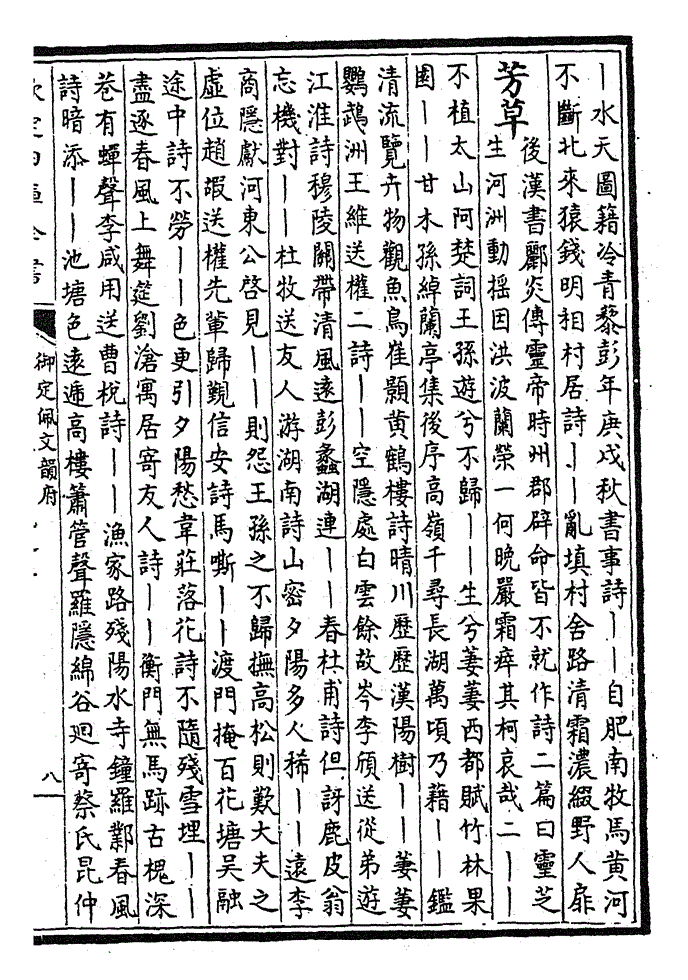 丨水天圖籍冷青藜彭年庚戌秋書事詩丨丨自肥南牧馬黄河
不斷北來猿錢明相村居詩丨丨亂填村舍路清霜濃綴野人扉
芳草
後漢書酈炎傳靈帝時州郡辟命皆不就作詩二篇曰靈芝
生河洲動揺因洪波蘭榮一何晚嚴霜瘁其柯哀哉二丨丨
不植太山阿楚詞王孫遊兮不歸丨丨生兮萋萋西都賦竹林果
園丨丨甘木孫綽蘭亭集後序高嶺千尋長湖萬頃乃藉丨丨鑑
清流覽卉物觀魚鳥崔顥黄鶴樓詩晴川歷歷漢陽樹丨丨萋萋
鸚鵡洲王維送權二詩丨丨空隱處白雲餘故岑李頎送從弟遊
江淮詩穆陵關帶清風遠彭蠡湖連丨丨春杜甫詩但訝鹿皮翁
忘機對丨丨杜牧送友人游湖南詩山密夕陽多人稀丨丨遠李
商隱獻河東公啓見丨丨則怨王孫之不歸撫高松則歎大夫之
虛位趙嘏送權先輩歸覲信安詩馬嘶丨丨渡門掩百花塘吴融
途中詩不勞丨丨色更引夕陽愁韋莊落花詩不隨殘雪埋丨丨
盡逐春風上舞筵劉滄寓居寄友人詩丨丨衡門無馬跡古槐深
巷有蟬聲李咸用送曹棁詩丨丨漁家路殘陽水寺鐘羅鄴春風
詩暗添丨丨池塘色遠遞高樓簫管聲羅隱綿谷迴寄蔡氏昆仲
御定佩文韻府
八